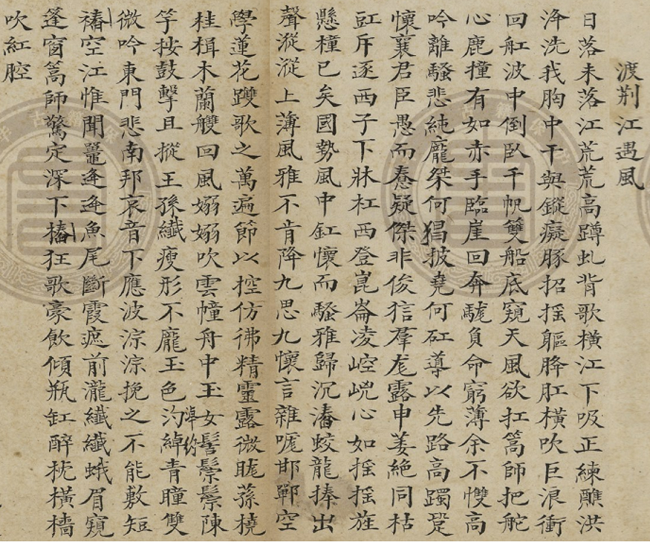 渡荆江遇風
日落未落江荒荒高蹲虬背歌橫江下吸正練醮洪
洚洗我胸中干與鏦癡豚招搖軀胮肛橫吹巨浪衝
回舡波中倒臥千帆雙船底窺天風欲扛篙師把舵
心鹿撞有如赤手臨崖回奔駹負命窮薄余不愯高
吟離騷悲純龐桀何猖披堯何矼導以先路高躅跫
懷襄君臣愚而惷疑傑非俊狺羣尨露申姜絶同枯
豇斥逐西子下牀杠西登崑崙凌崆峣心如搖搖旌
懸橦已矣國勢風中釭懷而騷雅歸沉潘蛟龍捧出
聲漎漎上薄風雅不肯降九思九懷言雜哤邯鄲空
學蓮花䠼歌之萬遍節以椌仿彿精靈露微眬蓀橈
桂楫木蘭艭回風嫋嫋吹雲幢舟中玉女髻鬆鬆陳
竽按鼓擊且摐王孫纖瘦形不龐玉色汋綽青瞳雙
微吟東門悲南邦哀音下應波淙淙挽之不能敷短
樁空江惟聞鼉逄逄魚尾斷霞遮前瀧纖纖蛾眉窺
篷窗篙師驚定深下樁狂歌豪飲傾瓶缸醉枕橫檣
吹紅腔